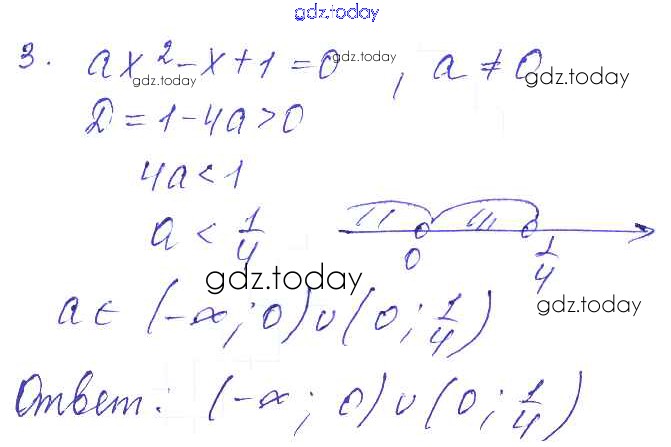 gdz.today
3. ax² - x + 1 = 0, a ≠ 0
gdz.today gdz.today gdz.today
D = 1 - 4a > 0
4a < 1
a < 1/4
0 1/4
gdz.today
gdz.today
a ∈ (-∞; 0) ∪ (0; 1/4)
Ответ: (-∞; 0) ∪ (0; 1/4)